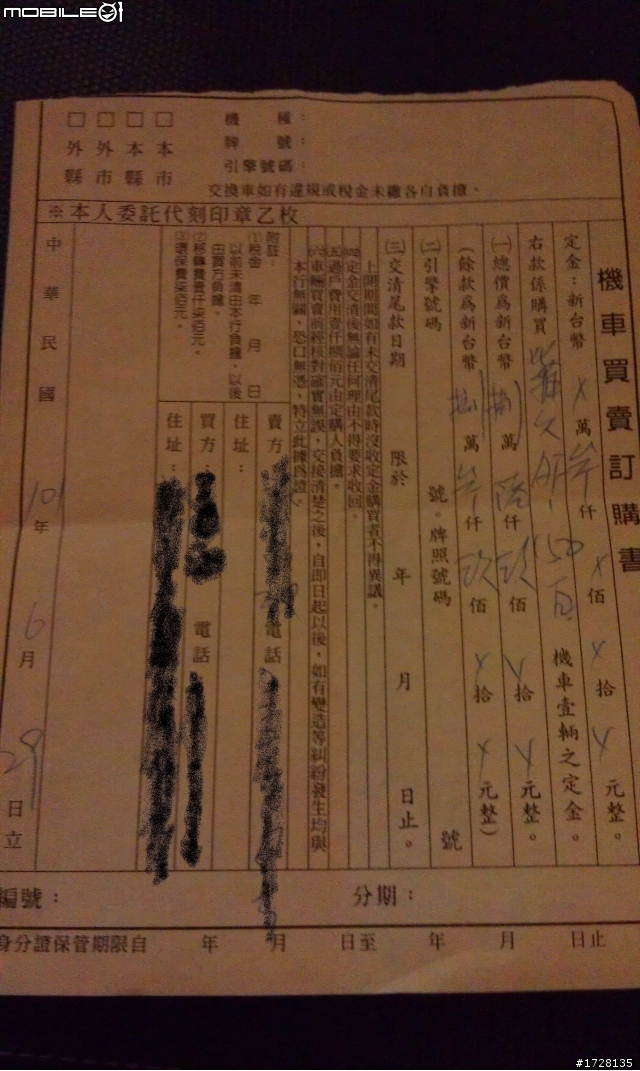 MOBILE01
機車買賣訂購書
定金：新台幣 X 萬 仟 X 佰 X 拾 X 元整。
右款係購買 150 機車壹輛之定金。
(一)總價為新台幣 捌 萬 陸 仟 玖 佰 X 拾 X 元整。
(餘款為新台幣 捌 萬 仟 玖 佰 X 拾 X 元整)
(二)引擎號碼 號。牌照號碼 號
(三)交清尾款日期 限於 年 月 日止。
上開期間如有未交清尾款時沒收定金購買者不得異議。
四定金交清後無論任何理由不得要求收回。
五過戶費用壹仟捌佰元由定購人負擔。
六車輛買賣前經核對確實無誤，交接清楚之後，自即日起以後，如有變造等糾紛發生均與
本行無關，恐口無憑，特立此據為證。
附註：
(1)稅金 年 月 日
以前未清由本行負擔，以後
由買方負擔。
(2)移轉費壹仟柒佰元。
(3)環保費柒佰元。
賣方： 電話
住址：
買方： 電話
住址：
中華民國 101 年 6 月 29 日立
※本人委託代刻印章乙枚
機種：
牌號：
引擎號碼：
交換車如有違規或稅金未繳各自負擔。
□本市
□本縣
□外市
□外縣
編號： 分期：
身分證保管期限自 年 月 日至 年 月 日止
#1728135